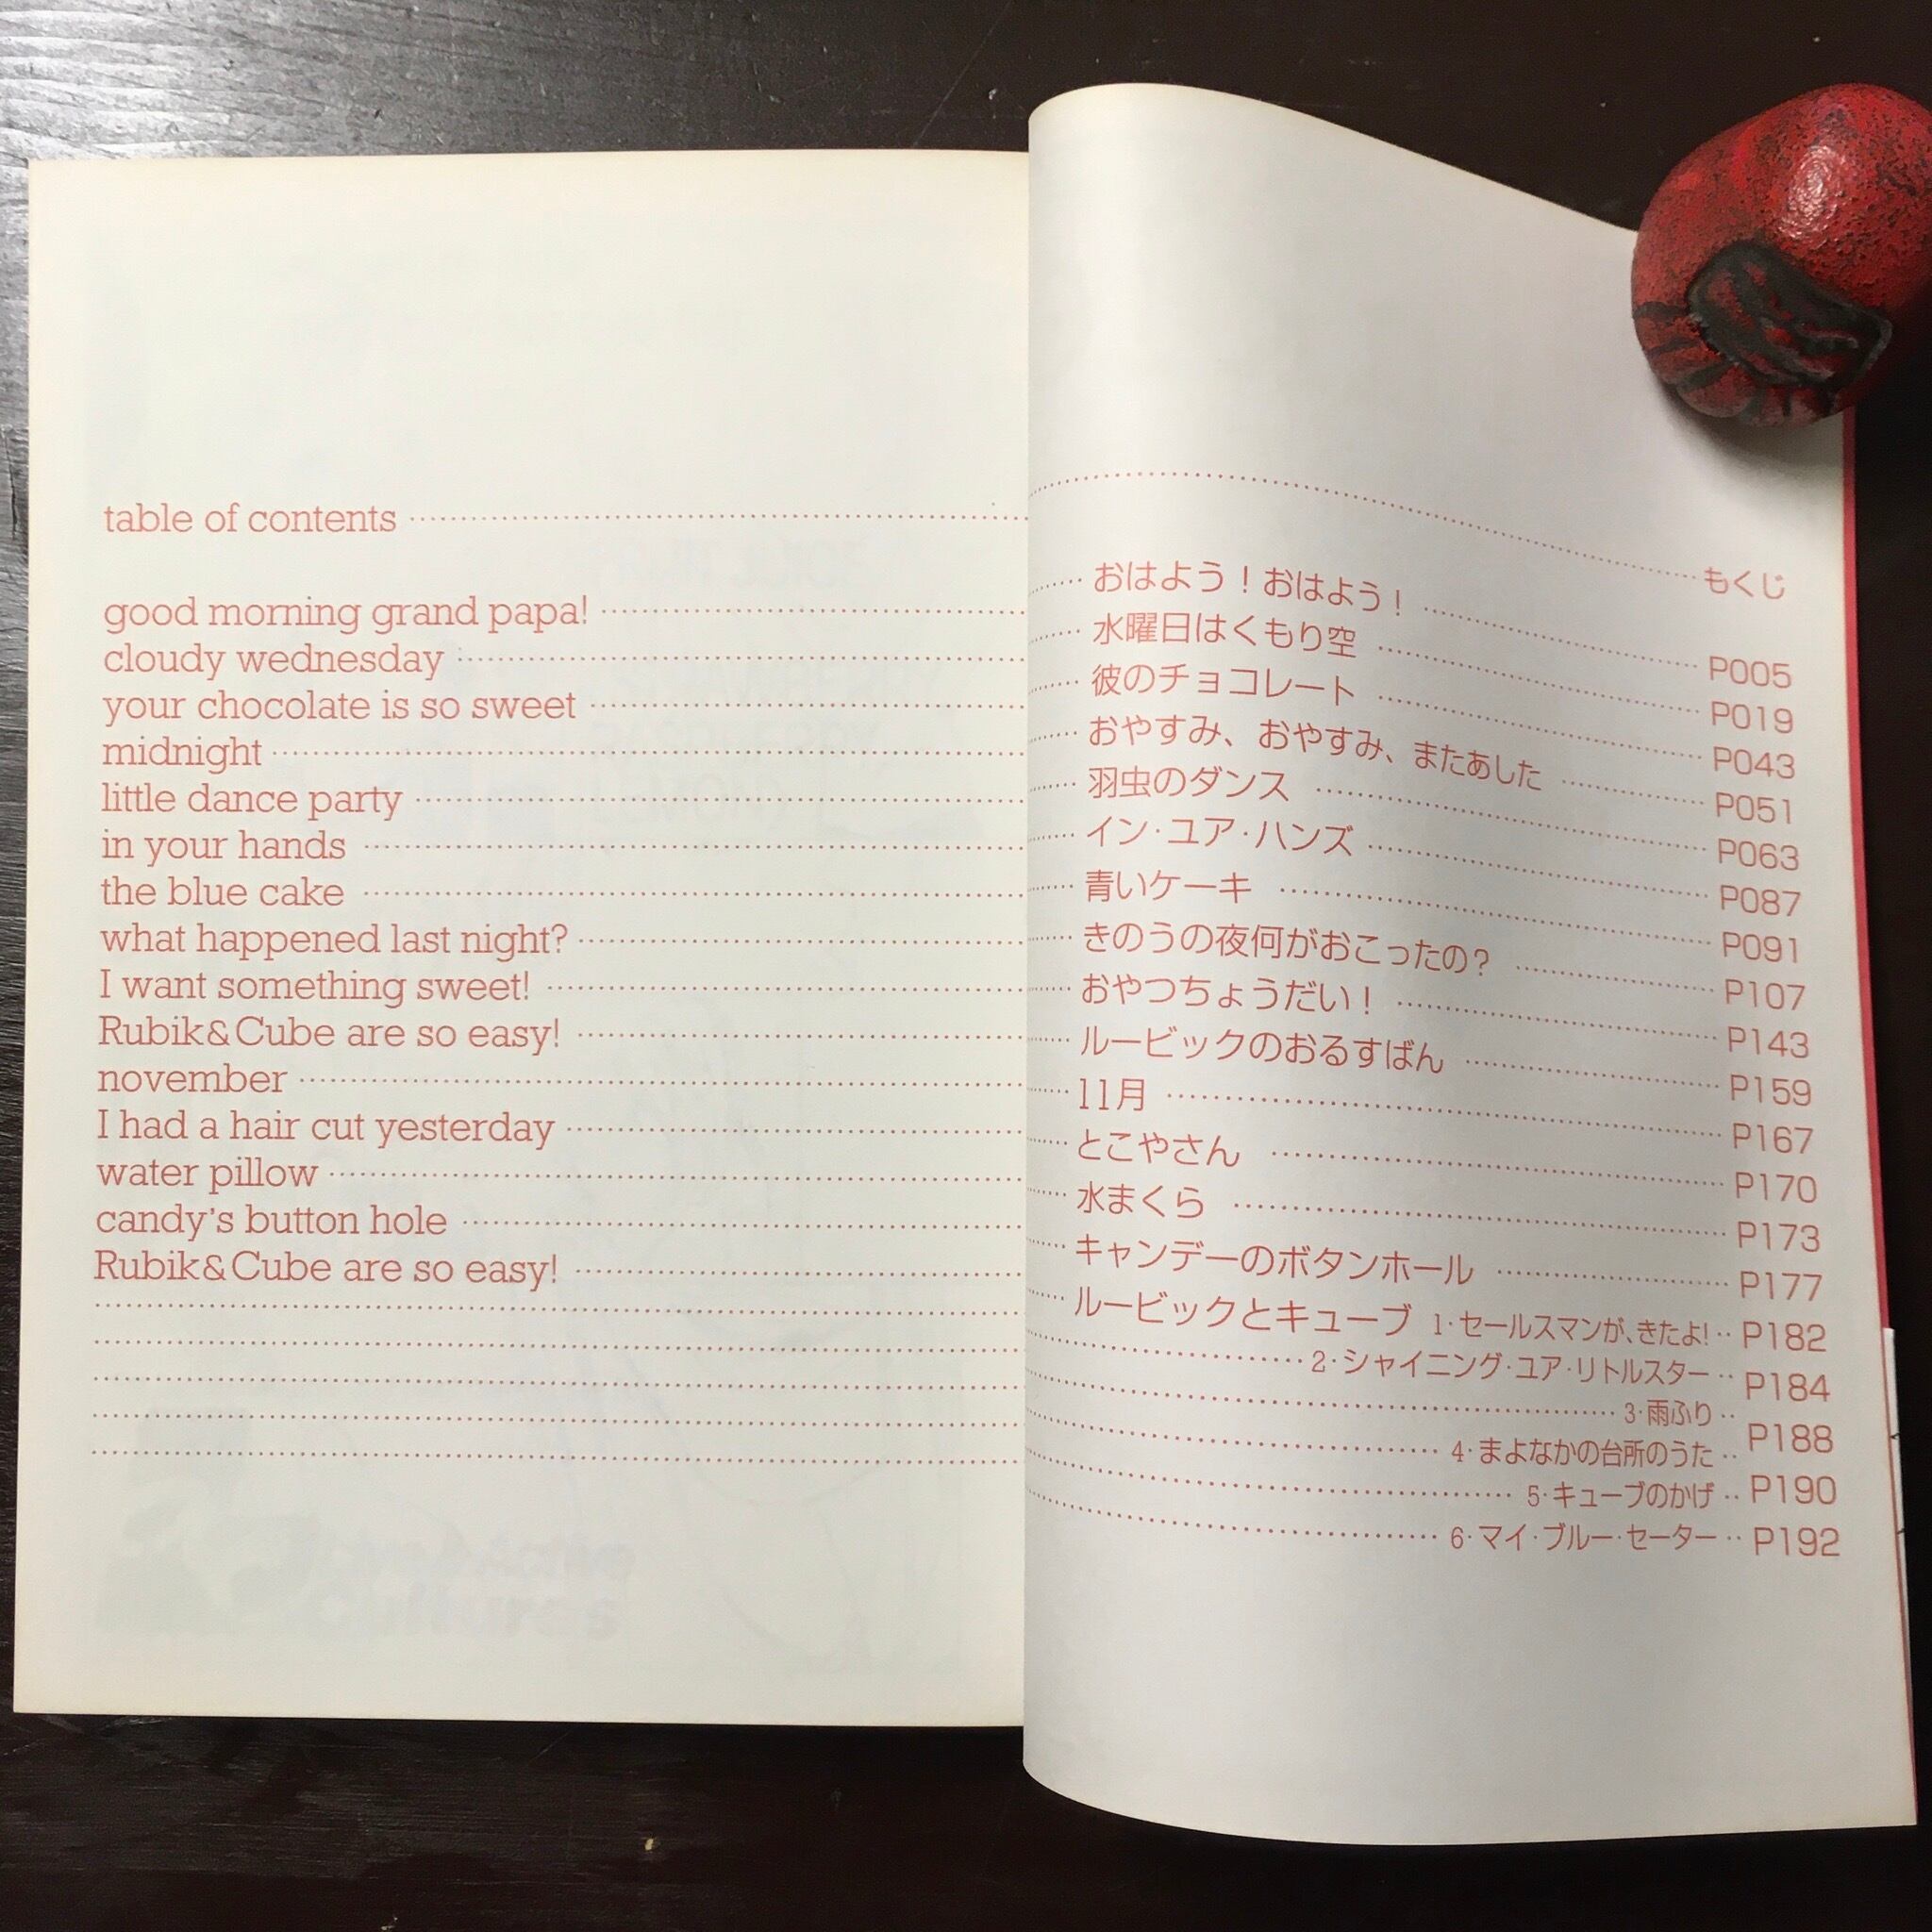 table of contents もくじ
good morning grand papa! おはよう！おはよう！ P005
cloudy wednesday 水曜日はくもり空 P019
your chocolate is so sweet 彼のチョコレート P043
midnight おやすみ、おやすみ、またあした P051
little dance party 羽虫のダンス P063
in your hands イン・ユア・ハンズ P087
the blue cake 青いケーキ P091
what happened last night? きのうの夜何がおこったの？ P107
I want something sweet! おやつちょうだい！ P143
Rubik&Cube are so easy! ルービックのおるすばん P159
november 11月 P167
I had a hair cut yesterday とこやさん P170
water pillow 水まくら P173
candy's button hole キャンデーのボタンホール P177
Rubik&Cube are so easy! ルービックとキューブ 1・セールスマンが、きたよ! P182
2・シャイニング・ユア・リトルスター P184
3・雨ふり P188
4・まよなかの台所のうた P190
5・キューブのかげ P192
6・マイ・ブルー・セーター